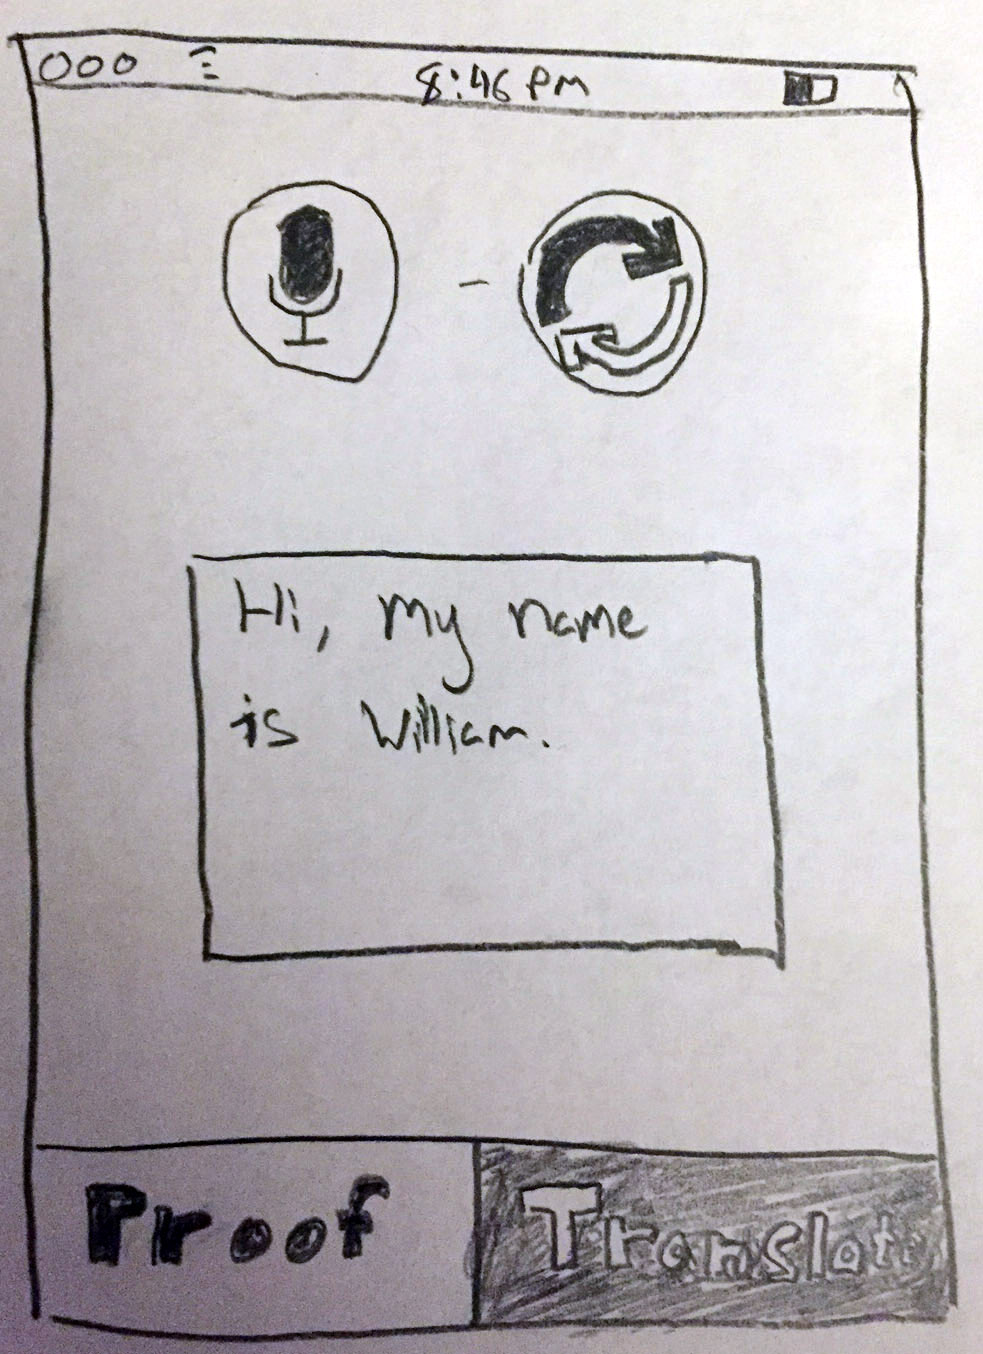 8:46 PM
Hi, my name
is William.
Proof
Translate